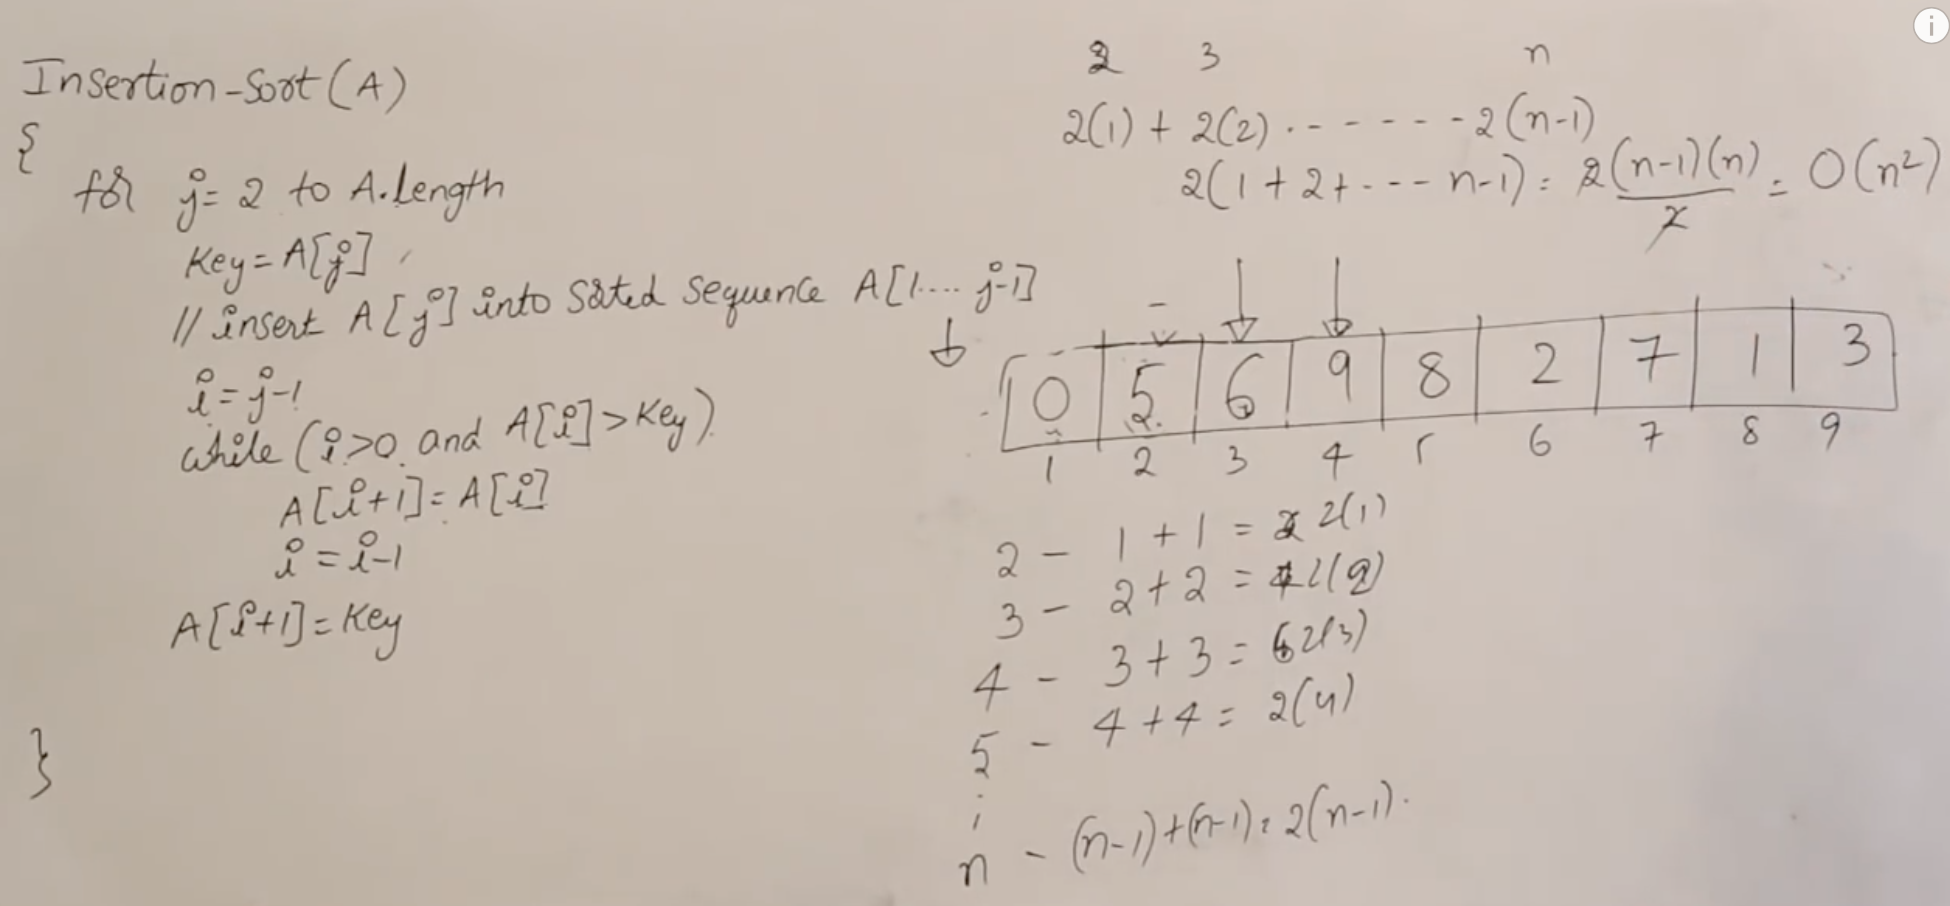 Insertion-Sort(A)
{
for j=2 to A.length
Key=A[j]
// insert A[j] into sorted sequence A[1.... j-1]
i=j-1
while (i>0 and A[i]>Key)
A[i+1]=A[i]
i=i-1
A[i+1]=Key
}
2 3 n
2(1) + 2(2) .------- 2(n-1)
2(1+2+---- n-1) = 2(n-1)(n) = O(n²)
2
0 5 6 9 8 2 7 1 3
1 2 3 4 5 6 7 8 9
2 - 1+1 = 2 2(1)
3 - 2+2 = 4 2(2)
4 - 3+3 = 6 2(3)
5 - 4+4 = 2(4)
n - (n-1)+(n-1) = 2(n-1).